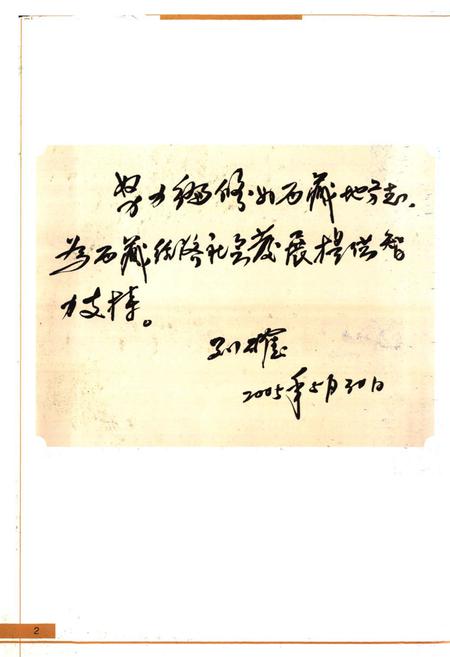 努力编修好西藏地方志，
为西藏经济社会发展提供智
力支撑。
2005年5月30日
2